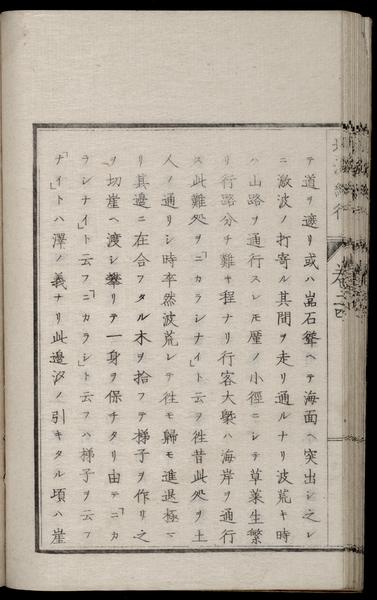 テ道ヲ遮リ或ハ嵓石聳ヘテ海面ヘ突出シ之レ
ニ激波ノ打寄ル其間ヲ走リ通ルナリ波荒キ時
ハ山路ヲ通行スレモ崖ノ小徑ニシテ草葉生繁
リ行路分チ難キ程ナリ行客大槩ハ海岸ヲ通行
ス此難処ヲ「カラシナイ」ト云ヲ徃昔此処ヲ土
人ノ通リシ時卒然波荒レテ徃モ歸モ進退極マ
リ其邊ニ在合フタル木ヲ拾フテ梯子ヲ作リ之
ヲ切崖ヘ渡シ攀リテ一身ヲ保チタリ由テ「カ
ラシナイ」ト云フ「カラシ」ト云フハ梯子ヲ云フ
「ナイ」トハ澤ノ義ナリ此邊汐ノ引キタル頃ハ崖